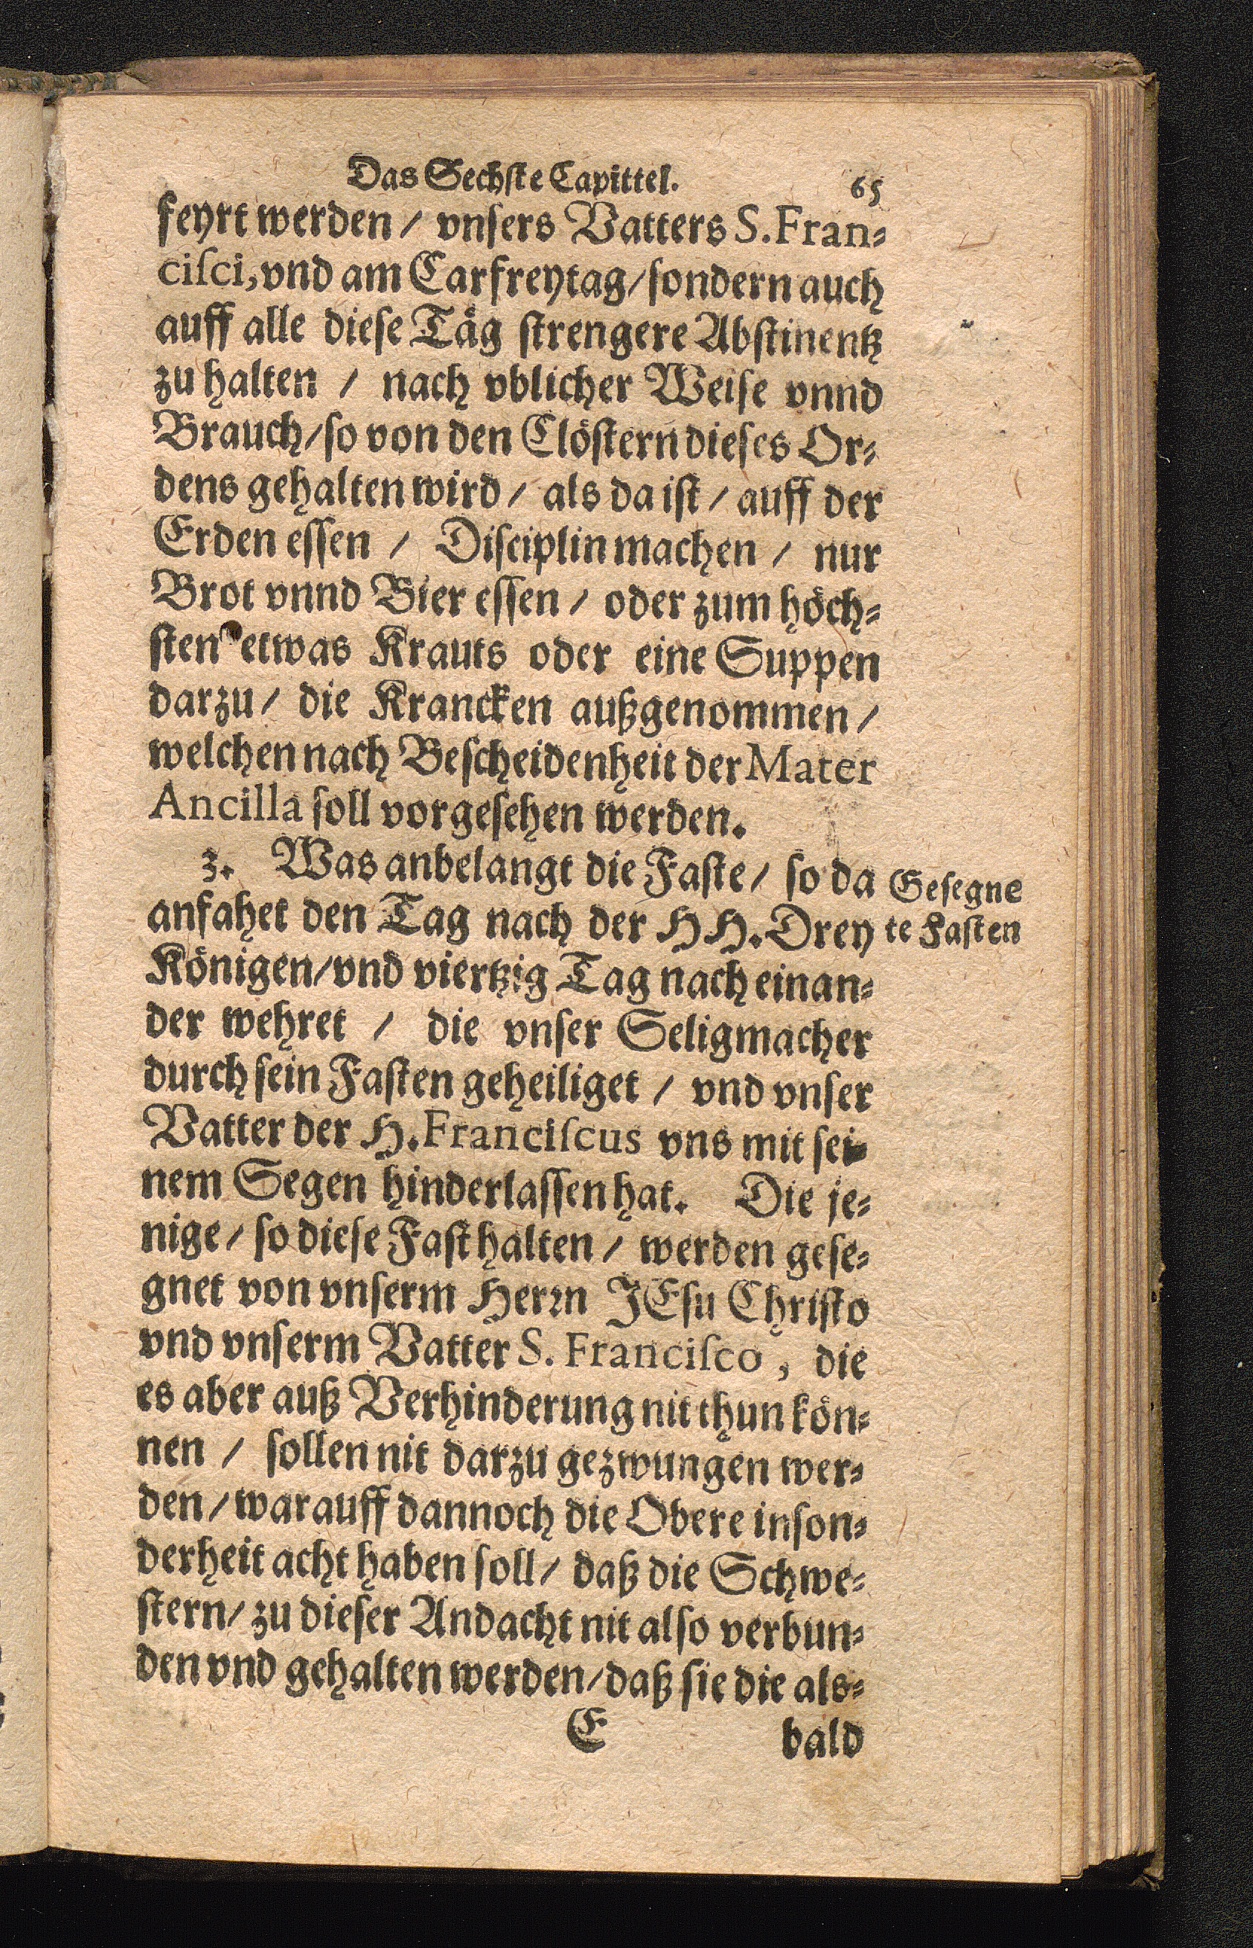 Das Sechste Capittel. 65
feyrt werden / vnsers Vatters S. Fran-
ciſci, vnd am Carfreytag / sondern auch
auff alle diese Täg strengere Abstinentz
zu halten / nach vblicher Weise vnnd
Brauch / so von den Clöstern dieses Or-
dens gehalten wird / als da ist / auff der
Erden essen / Disciplin machen / nur
Brot vnnd Bier essen / oder zum höch-
sten etwas Krauts oder eine Suppen
darzu / die Krancken außgenommen /
welchen nach Bescheidenheit der Mater
Ancilla soll vorgesehen werden.
3. Was anbelangt die Faste / so da
Gesegne
anfahet den Tag nach der HH. Drey
te Fasten
Königen / vnd viertzig Tag nach einan-
der wehret / die vnser Seligmacher
durch sein Fasten geheiliget / vnd vnser
Vatter der H. Franciſcus vns mit sei-
nem Segen hinderlassen hat. Die je-
nige / so diese Fast halten / werden gese-
gnet von vnserm Herrn JEsu Christo
vnd vnserm Vatter S. Franciſco, die
es aber auß Verhinderung nit thun kön-
nen / sollen nit darzu gezwungen wer-
den / warauff dannoch die Obere inson-
derheit acht haben soll / daß die Schwe-
stern / zu dieser Andacht nit also verbun-
den vnd gehalten werden / daß sie die als-
E bald